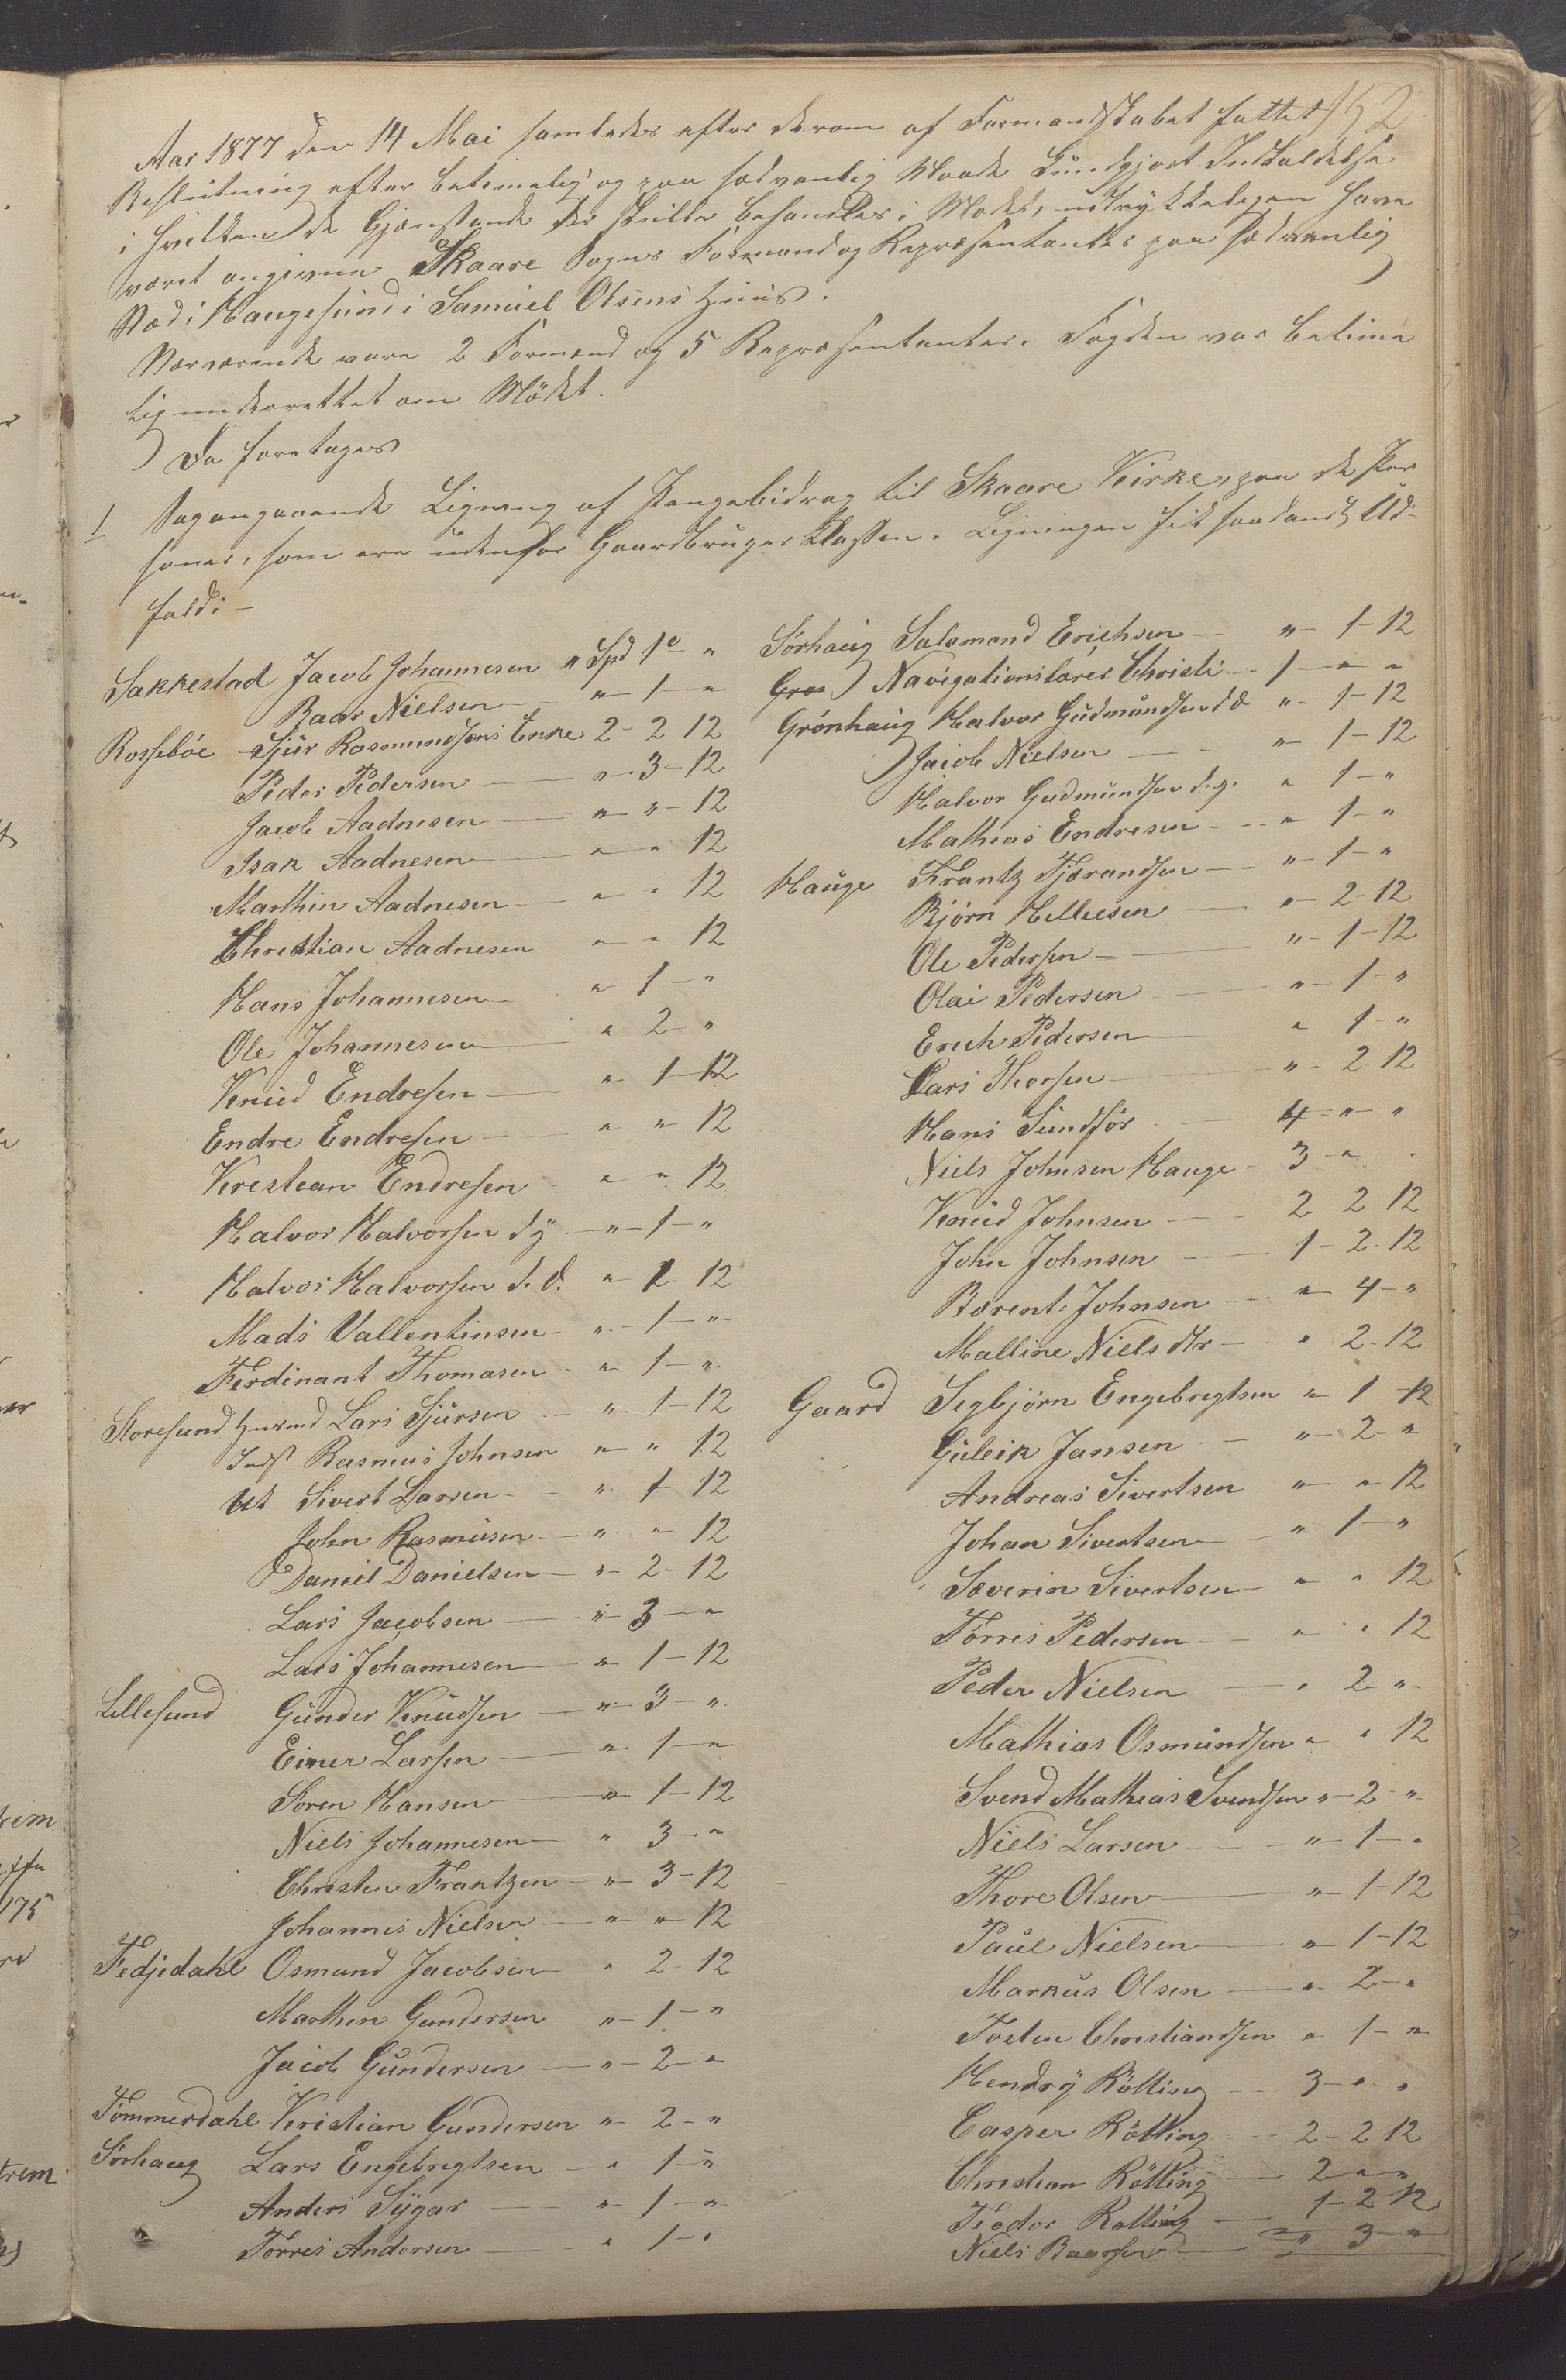 152
Aar 1877 den 14 Mai samledes efter derom af Formandskabet fattet
Beslutning efter betimelig og paa sædvanlig Maade Kundgjort Indkaldelse
i hvilken de Gjenstande der skulle behandles i Mødet, udtrykkeligen have
været angivne Skaare Sogns Formænd og Repræsentanter paa sædvanlig
Sted i Haugesund i Samuel Olsens Huus.
Nærværende vare 2 Formænd og 5 Repræsentanter. Fogden var betime
lig underrettet om Mødet.
Da foretoges
1 Sag angaaende Ligning af Pengebidrag til Skaare Kirke, paa de Per
soner, som ere udenfor Gaardbruger Klassen. Ligningen fik saadant Ud-
fald: -
Sakkestad Jacob Johannesen " Spd 1 "
Baar Nielsen " 1 "
Rossebøe Sjur Rasmundsens Enke 2 - 2 12
Peder Pedersen " 3 - 12
Jacob Aadnesen " " - 12
Isak Aadnesen " " 12
Marthin Aadnesen " " 12
Christian Aadnesen " " 12
Hans Johannesen " 1 - "
Ole Johannesen " 2 "
Knud Endresen " 1 - 12
Endre Endresen " " 12
Kristean Endresen " " 12
Halvor Halvorsen d y " 1 - "
Halvor Halvorsen d. æ. " 1 - 12
Mads Vallentinsen " 1 - "
Ferdinant Thomasen " 1 - "
Storesund Husmd Lars Sjursen " 1 - 12
Inds Rasmus Johnsen " " 12
Sivert Larsen " 1 12
John Rasmusen " " 12
Daniel Danielsen " 2 - 12
Lars Jacobsen " 3 - "
Lars Johannesen " 1 - 12
Lillesund Gunder Knudsen " 3 - "
Einer Larsen " 1 - "
Søren Hansen " 1 - 12
Niels Johannesen " 3 - "
Christen Frantzen " 3 - 12
Johannes Nielsen " " 12
Fedjedahl Osmund Jacobsen " 2 - 12
Marthin Gundersen " 1 - "
Jacob Gundersen " 2 "
Tømmerdahl Kristian Gundersen " 2 - "
Sørhaug Lars Engebregtsen " 1 - "
Anders Sygar " 1 - "
Torres Andersen " 1 - "
Sørhaug Salamond Erichsen " 1 - 12
Grøn Navigationslærer Christi 1 " "
Grønhaug Halvor Gudmundsen d æ " 1 - 12
Jacob Nielsen " 1 - 12
Halvor Gudmundsen d. y. " 1 - "
Mathias Endresen " 1 - "
Hauge Frantz Tjerandsen " 1 - "
Bjørn Helliesen " 2 - 12
Ole Pedersen " 1 - 12
Olai Pedersen " 1 - "
Erich Pedersen " 1 - "
Lars Thorsen " 2 12
Hans Sundfør 4 " "
Niels Johnsen Hauge 3 - " "
Knud Johnsen 2 2 12
John Johnsen 1 - 2 - 12
Bærent Johnsen " 4 - "
Malline Niels dtr " 2 - 12
Gaard Segbjørn Engebregtsen " 1 - 12
Guleik Jansen " 2 - "
Andreas Sivertsen " " 12
Johan Sivertsen " 1 - "
Sæverin Sivertsen " " 12
Torres Pedersen " " 12
Peder Nielsen " 2 "
Mathias Osmundsen " " 12
Svend Mathias Svendsen " 2 - "
Niels Larsen " 1 - "
Thore Olsen " 1 - 12
Paul Nielsen " 1 - 12
Markus Olsen " 2 - "
Tosten Christiandsen " 1 - "
Hendry Røtting 3 " "
Casper Røtting 2 - 2 12
Christian Røtting 2 " "
Teodor Rotting 1 - 2 12
Niels Baarsen " 3 "